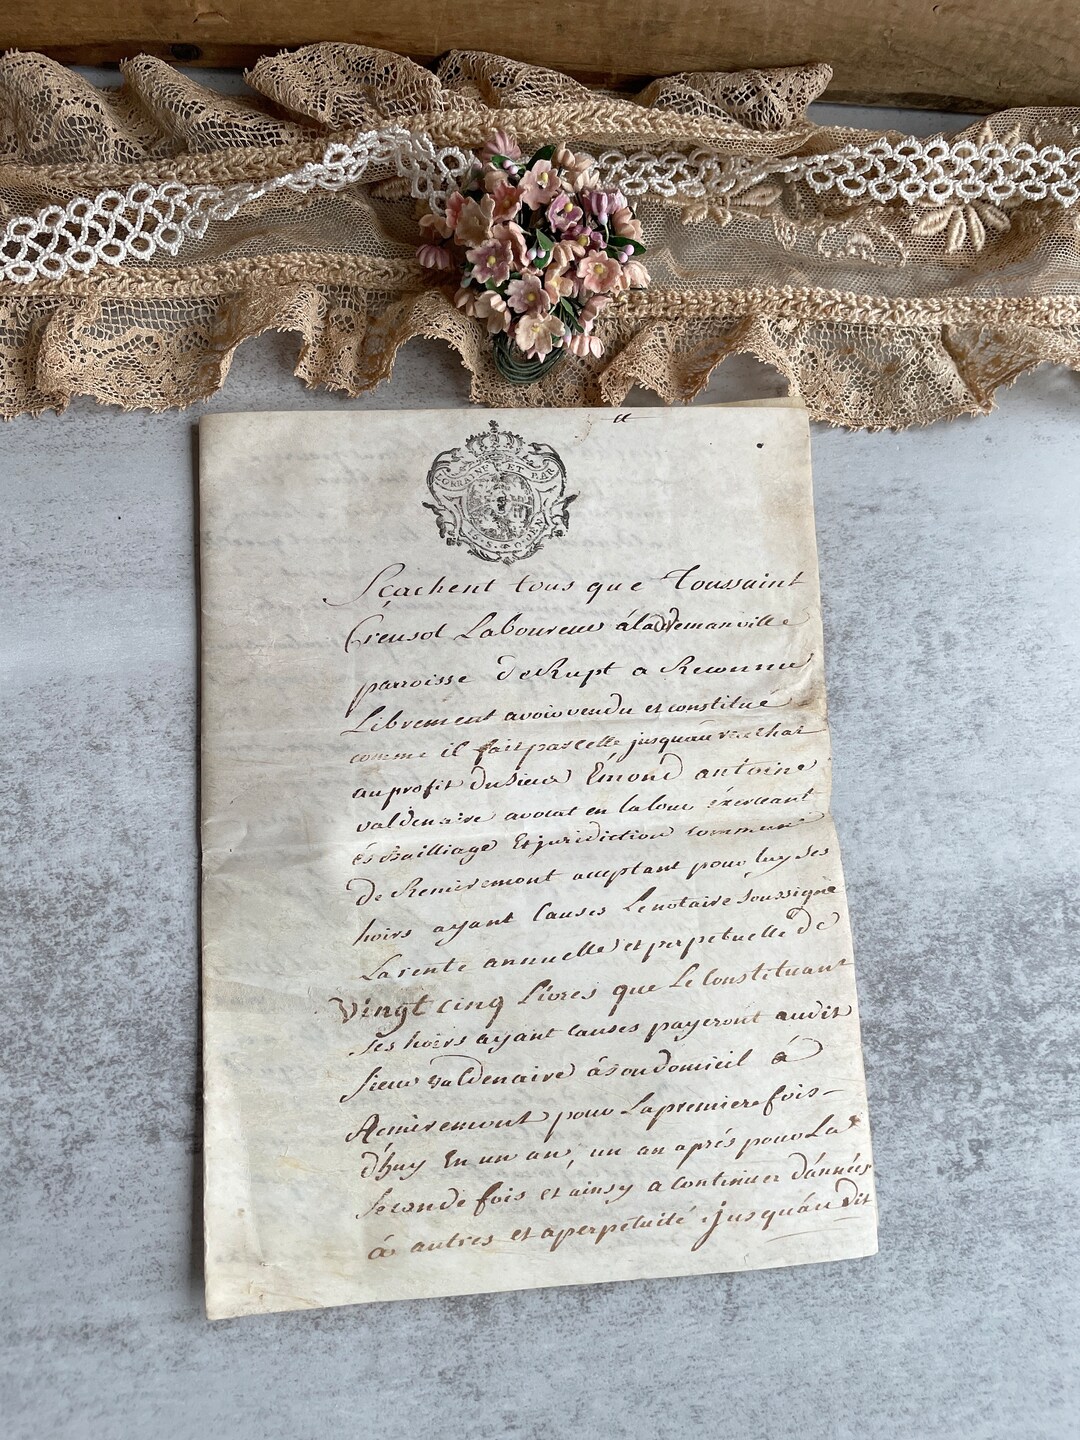 LORRAINE ET BAR
Sçachent tous que Toussaint
Creusot Laboureur à la Demanville
parroisse de Rupt a Reconnu
Librement avoir vendu et constitué
comme il fait par cette jusquau rachat
au profit du sieur Émond antoine
valdenaire avocat en la Cour éxerceant
és Bailliage Et juridiction commune
de Remiremont acceptant pour luy ses
hoirs ayant Causes Le notaire soussigné
La rente annuelle et perpetuelle de
Vingt cinq Livres que Le Constituant
ses hoirs ayant causes payeront audit
sieur valdenaire à son domicil à
Remiremont pour La premiere fois
d'huy En un an, un an aprés pour La
seconde fois et ainsy a continuer d'années
à autres et a perpetuité jusqu'au dit